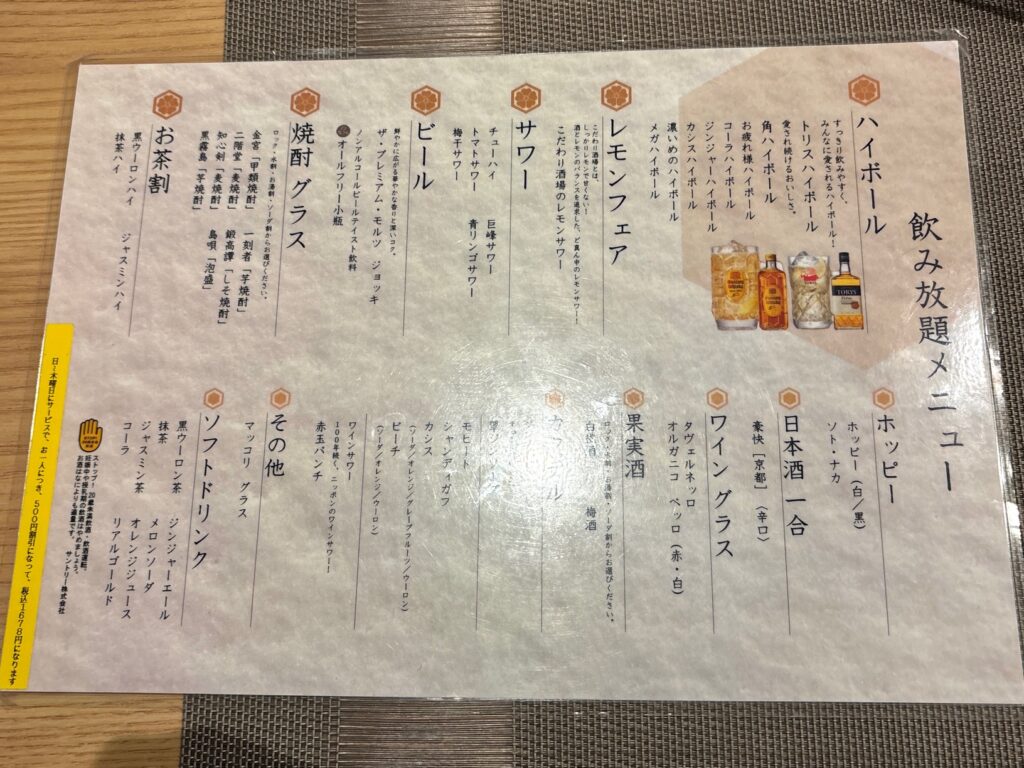 飲み放題メニュー
ハイボール
すっきり飲みやすく、
みんなに愛されるハイボール！
トリスハイボール
愛され続けるおいしさ。
角ハイボール
お疲れ様ハイボール
コーラハイボール
ジンジャーハイボール
カシスハイボール
濃いめのハイボール
メガハイボール
TORYS
レモンフェア
こだわり酒場とは、
しっかりレモンで甘くない！
酒とレモンのバランスを追求した、ど真ん中のレモンサワー！
こだわり酒場のレモンサワー
サワー
チューハイ 巨峰サワー
トマトサワー 青リンゴサワー
梅干サワー
ビール
鮮やかに広がる華やかな香りと深いコク。
ザ・プレミアム・モルツ ジョッキ
ノンアルコールビールテイスト飲料
オールフリー小瓶
焼酎 グラス
ロック・水割・お湯割・ソーダ割からお選びください。
金宮「甲類焼酎」 一刻者「芋焼酎」
二階堂「麦焼酎」 鍛高譚「しそ焼酎」
知心剣「麦焼酎」 島唄「泡盛」
黒霧島「芋焼酎」
お茶割
黒ウーロンハイ ジャスミンハイ
抹茶ハイ
ホッピー
ホッピー（白／黒）
ソト・ナカ
日本酒 一合
豪快［京都］（辛口）
ワイン グラス
タヴェルネッロ
オルガニコ ペッロ（赤・白）
果実酒
お湯割・ソーダ割からお選びください。
梅酒
モヒート
シャンディガフ
カシス
（ソーダ／オレンジ／グレープフルーツ／ウーロン）
ピーチ
（ソーダ／オレンジ／ウーロン）
ワインサワー
100年続く、ニッポンのワインサワー！
赤玉パンチ
その他
マッコリ グラス
ソフトドリンク
黒ウーロン茶 ジンジャーエール
抹茶 メロンソーダ
ジャスミン茶 オレンジジュース
コーラ リアルゴールド
ストップ！ 20歳未満飲酒・飲酒運転。
妊娠中や授乳期の飲酒はやめましょう。
お酒はなによりも適量です。 サントリー株式会社
日～木曜日にサービスで、お一人につき、500円割引になって、税込1678円になります